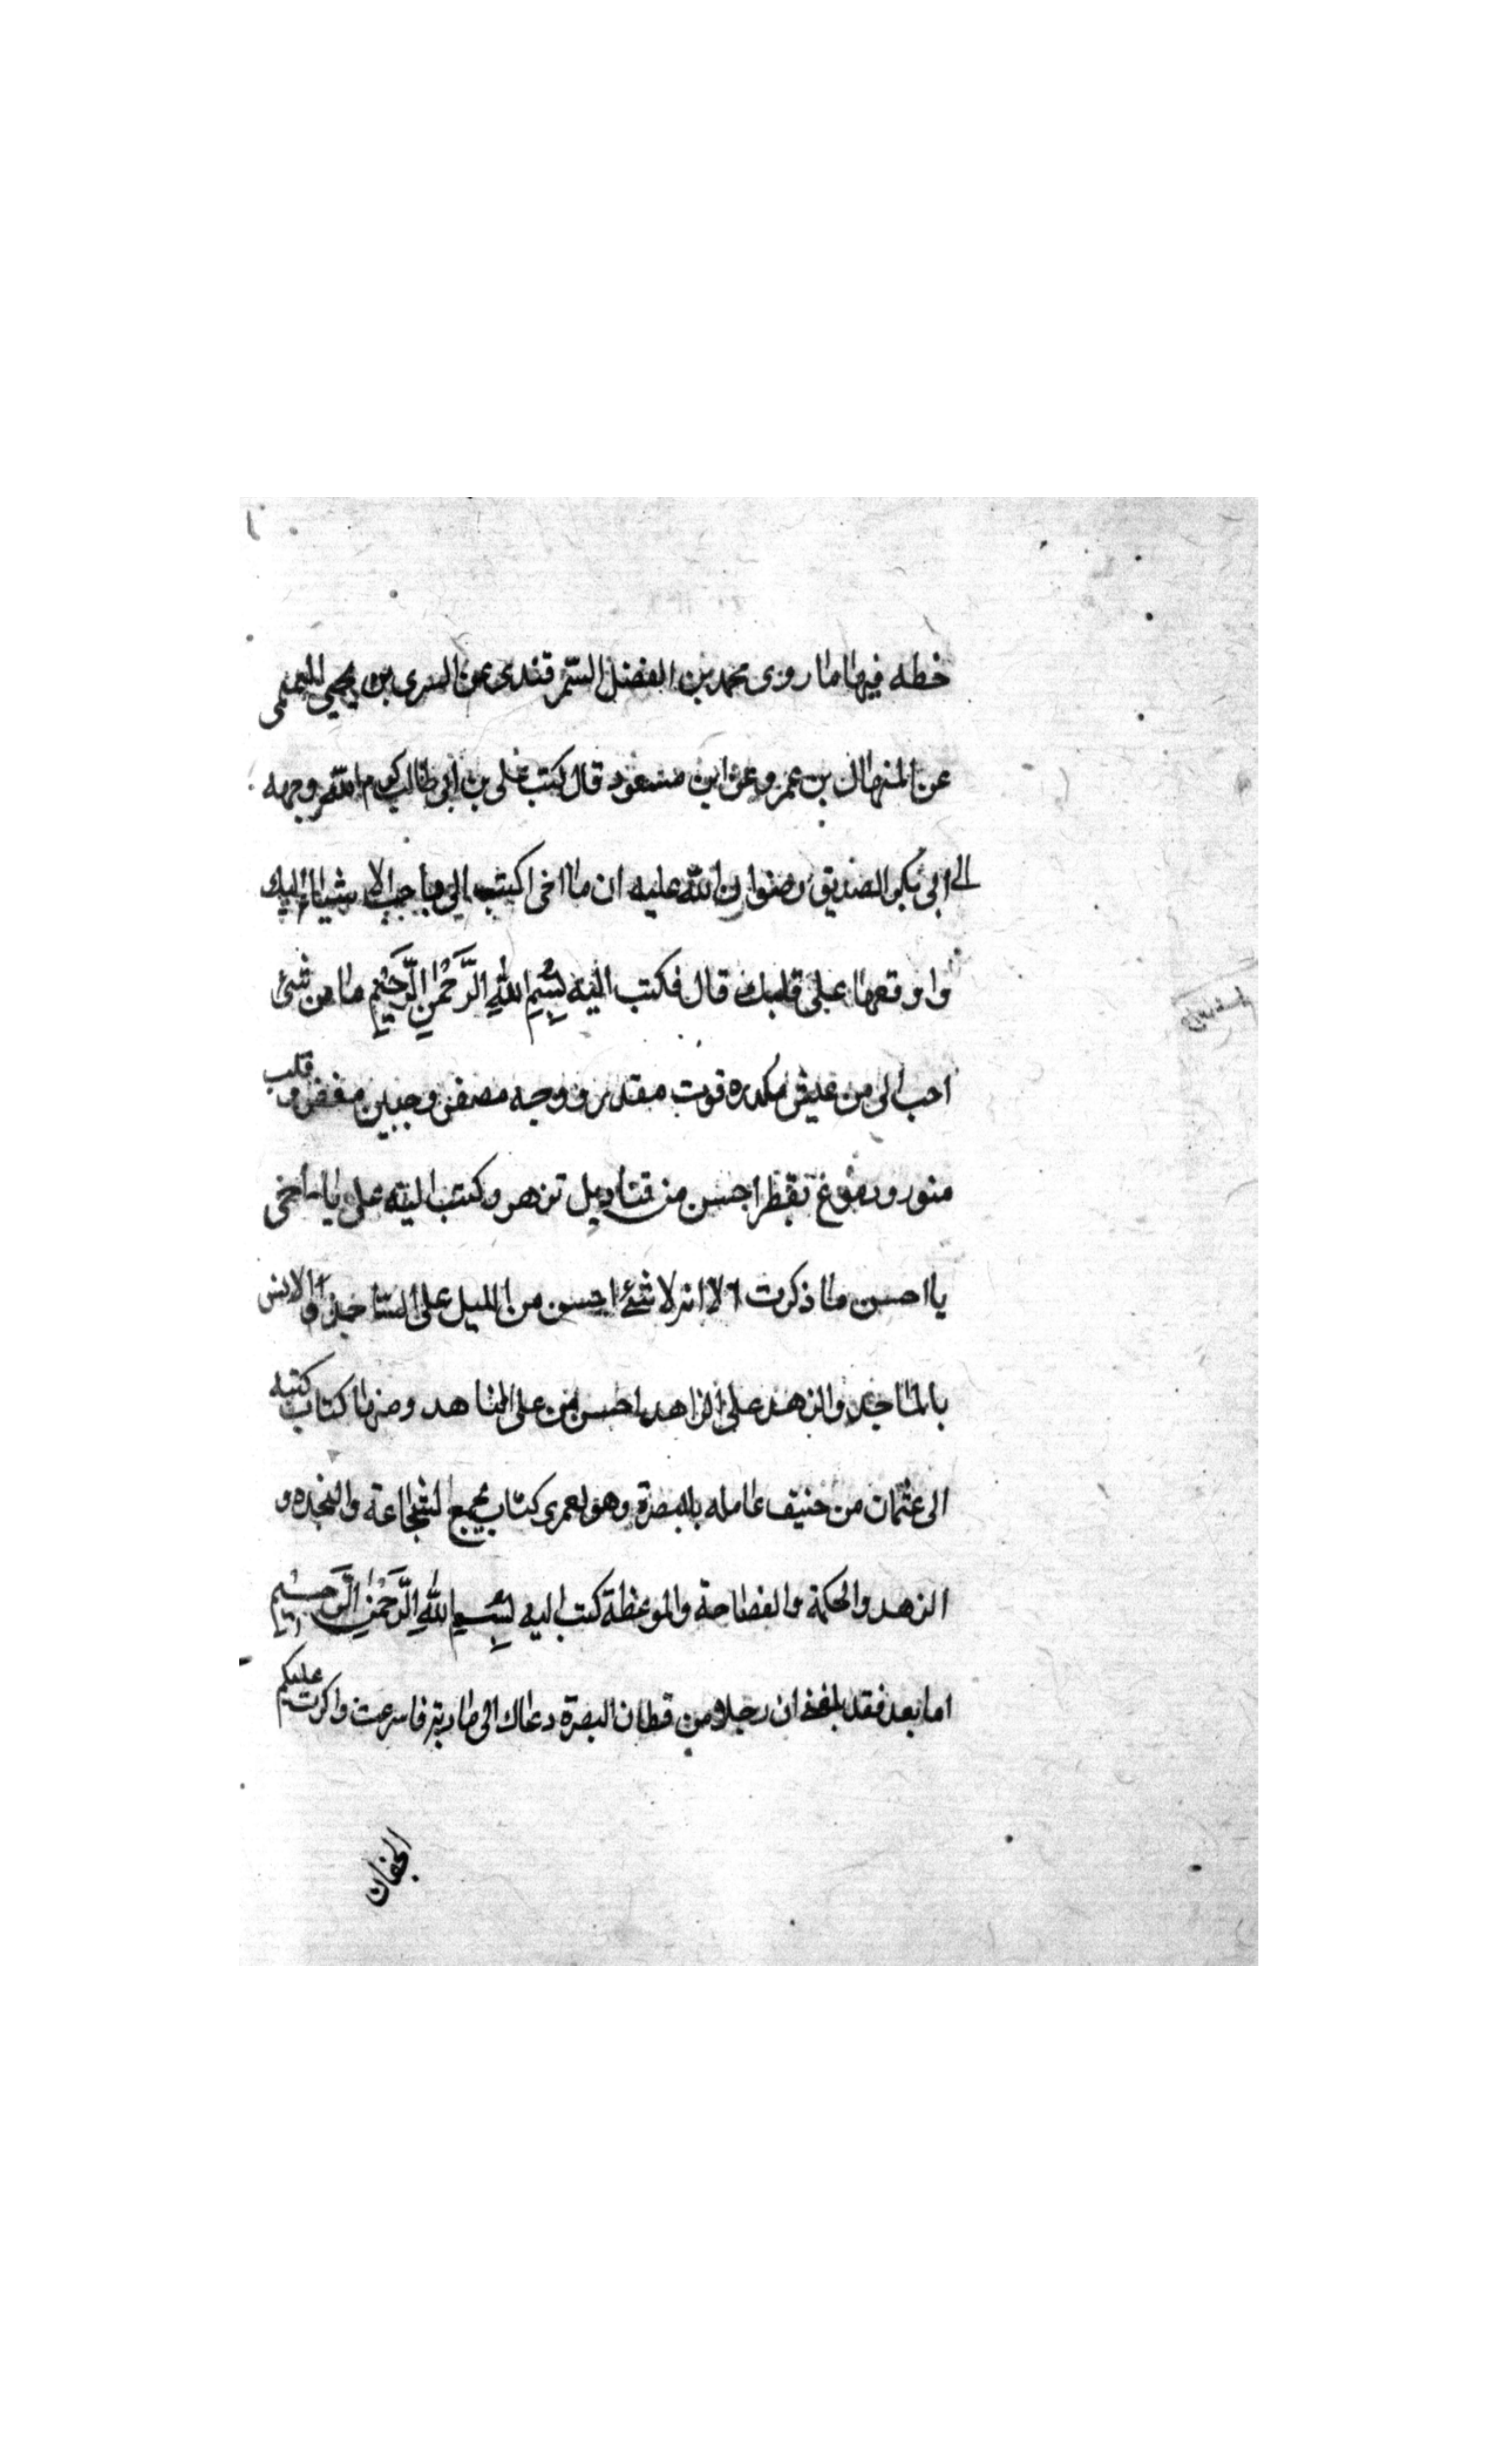 خطه فيها ما روى محمد بن الفضل السمرقندى عن السرى بن يحيى
عن المنهال بن عمرو عن ابن مسعود قال كتب على بن ابى طالب كرم الله وجهه
الى ابى بكر الصديق رضوان الله عليه ان ما اخى اكتب الى باحب الاشيا اليك
واوقعها على قلبك قال فكتب اليه بسم الله الرحمن الرحيم ما من شئ
احب الى من عيش مكدره قوت مقدر ووجه مصفر وجبين وقلب
منور ودموع تقطر احسن من قناديل تزهر وكتب اليه على يا اخى
يا احسن ما ذكرت الا انه لا شئ احسن من الميل على والانس
بالماجد والزهد على الزاهد احسن من على ومنها كتاب كتبه
الى عثمان من حنيف عامله بالبصرة وهو لعمرى كتاب يجمع الشجاعة والنجده و
الزهد والحكمة والفصاحة والموعظة كتب اليه بسم الله الرحمن الرحيم
اما بعد فقد بلغنى ان رجلا من قطان البصرة دعاك الى مادبة فاسرعت وكرت عليكم
الجفان